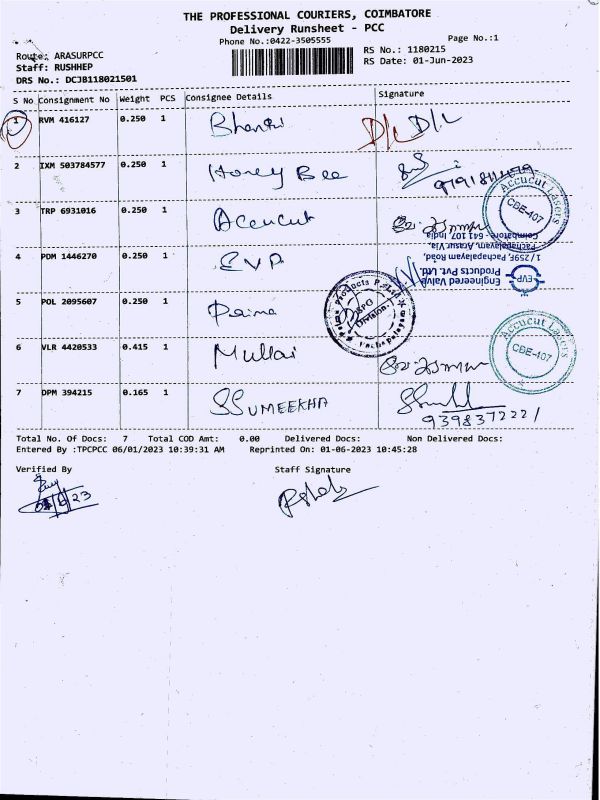 THE PROFESSIONAL COURIERS, COIMBATORE
Delivery Runsheet - PCC
Phone No.:0422-3505555
Page No.:1
Route: ARASURPCC
RS No.: 1180215
Staff: RUSHHEP
RS Date: 01-Jun-2023
DRS No.: DCJB118021501
S No Consignment No Weight PCS Consignee Details Signature
1 RVM 416127 0.250 1 D/L D/L
2 IXM 503784577 0.250 1 Honey Bee
3 TRP 6931016 0.250 1 Accucut
Accucut Lasers
CBE-407
4 PDM 1446270 0.250 1 EVP
Engineered Valve
Products Pvt. Ltd.
1/259F, Pachapalayam Road,
Pachapalayam, Arasur Via,
Coimbatore - 641 107. India
EVP
5 POL 2095607 0.250 1
Products P. Ltd
SPG
Division
6 VLR 4420533 0.415 1 Mullai
Accucut Lasers
CBE-407
7 DPM 394215 0.165 1 SSUMEEKHA
9398372221
Total No. Of Docs: 7 Total COD Amt: 0.00 Delivered Docs: Non Delivered Docs:
Entered By :TPCPCC 06/01/2023 10:39:31 AM Reprinted On: 01-06-2023 10:45:28
Verified By Staff Signature